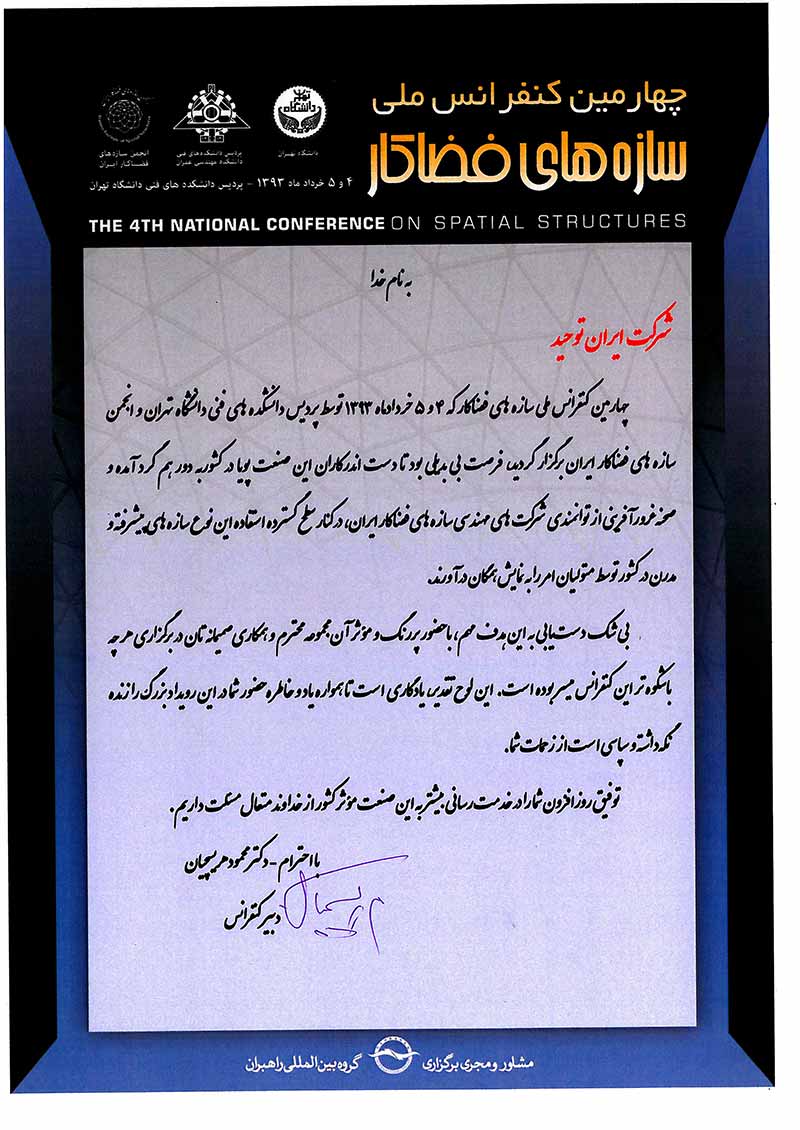 چهارمین کنفرانس ملی
سازه های فضاکار
دانشگاه تهران
پردیس دانشکده های فنی
دانشکده مهندسی عمران
انجمن سازه‌های
فضاکار ایران
۴ و ۵ خرداد ماه ۱۳۹۳ - پردیس دانشکده های فنی دانشگاه تهران
THE 4TH NATIONAL CONFERENCE ON SPATIAL STRUCTURES
به نام خدا
شرکت ایران توحید
چهارمین کنفرانس ملی سازه های فضاکار که ۴ و ۵ خردادماه ۱۳۹۳ توسط پردیس دانشکده های فنی دانشگاه تهران و انجمن
سازه های فضاکار ایران برگزار گردید، فرصت بی بدیلی بود تا دست اندرکاران این صنعت پویا در کشور به دور هم گرد آمده و
صحنه غرورآفرینی از توانمندی شرکت های مهندسی سازه های فضاکار ایران، در کنار سطح گسترده استفاده این نوع سازه های پیشرفته و
مدرن در کشور توسط متولیان امر را به نمایش همگان درآورند.
بی شک دست‌یابی به این هدف مهم، با حضور پررنگ و مؤثر آن مجموعه محترم و همکاری صمیمانه تان در برگزاری هر چه
باشکوه تر این کنفرانس میسر بوده است. این لوح تقدیر، یادگاری است تا همواره یاد و خاطره حضور شما در این رویداد بزرگ را زنده
نگه داشته و سپاسی است از زحمات شما.
توفیق روز افزون شما را در خدمت رسانی بیشتر به این صنعت مؤثر کشور از خداوند متعال مسئلت داریم.
با احترام - دکتر محمود هریسچیان
دبیر کنفرانس
مشاور و مجری برگزاری گروه بین المللی راهبران